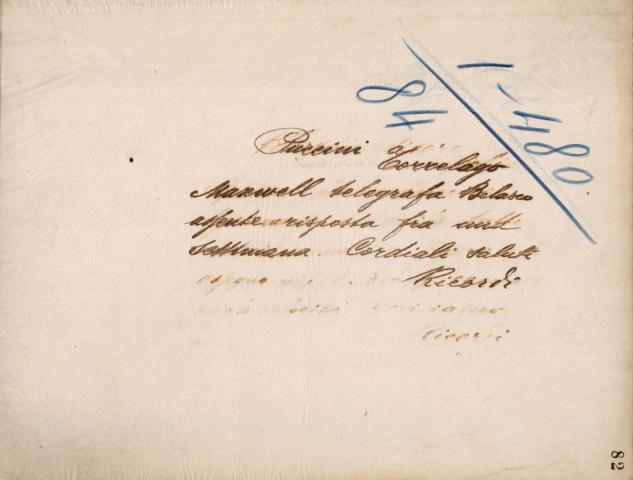 1-1480
84
Puccini Torrelago
Maxwell telegrafa Belasco
assente risposta fra
settimana. Cordiali saluti
Ricordi
Ricordi
82